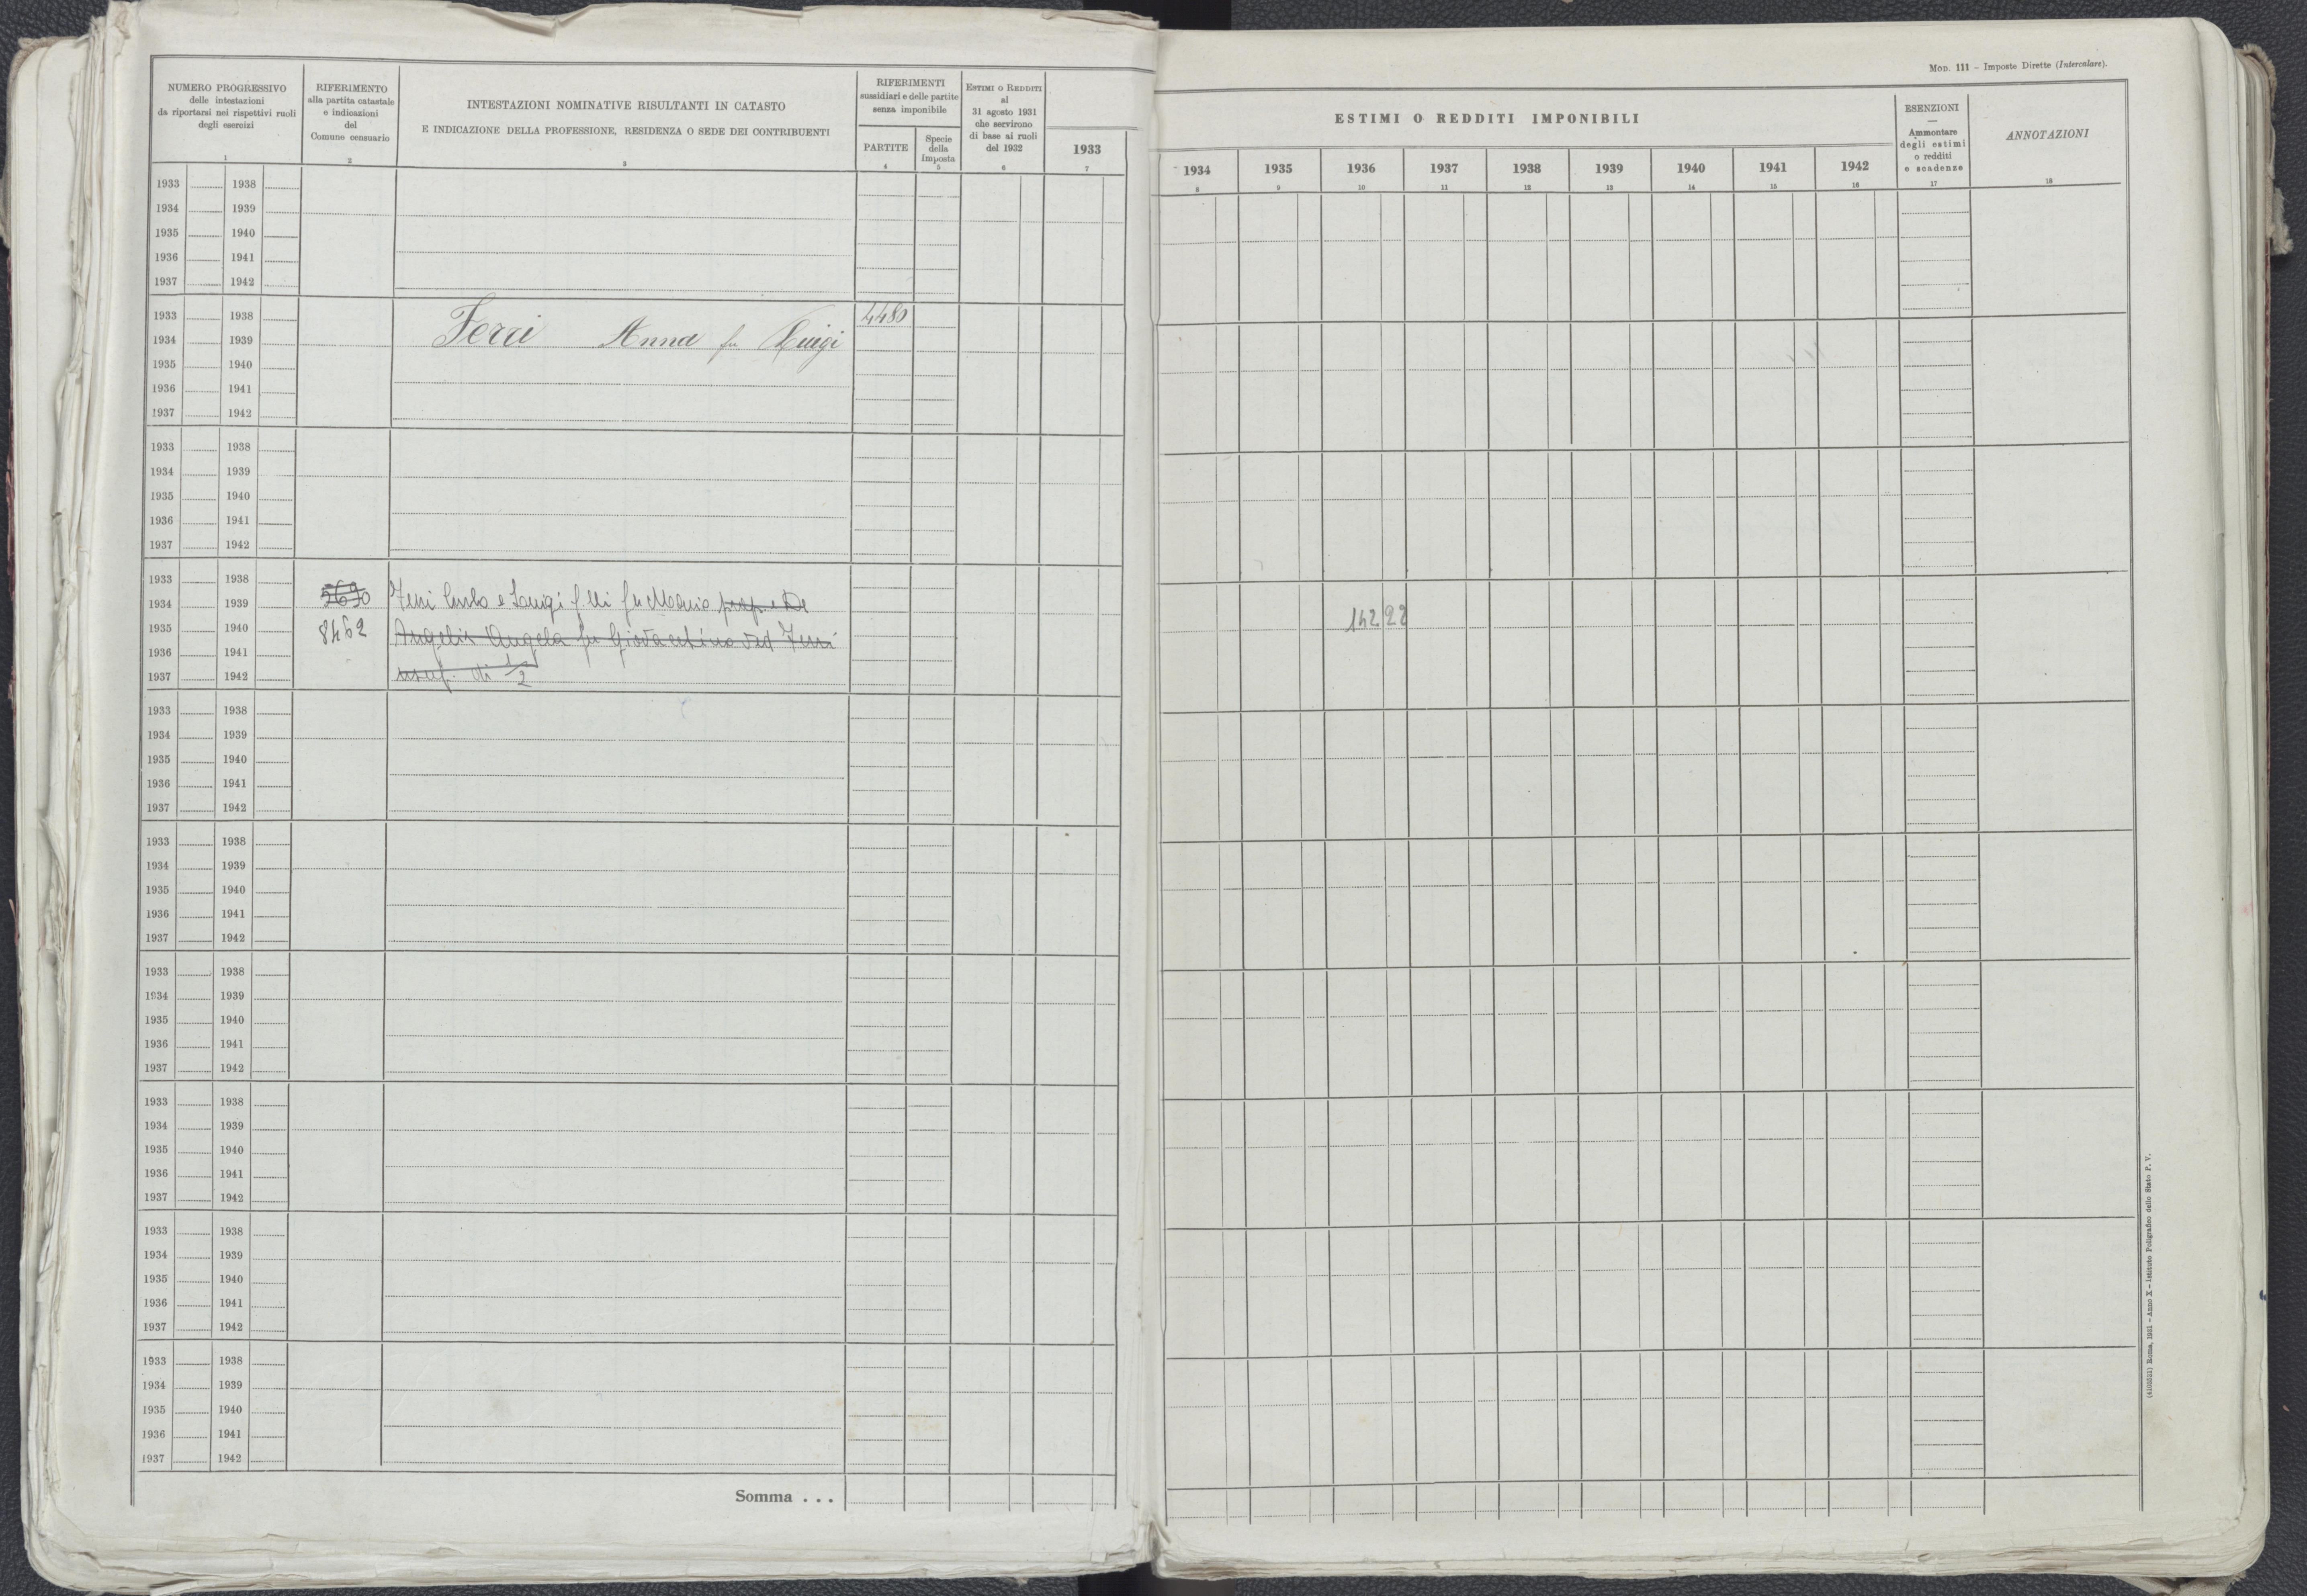 Mod. 111 - Imposte Dirette (Intercalare).
NUMERO PROGRESSIVO
delle intestazioni
da riportarsi nei rispettivi ruoli
degli esercizi
1
RIFERIMENTO
alla partita catastale
e indicazioni
del
Comune censuario
2
INTESTAZIONI NOMINATIVE RISULTANTI IN CATASTO
E INDICAZIONE DELLA PROFESSIONE, RESIDENZA O SEDE DEI CONTRIBUENTI
3
RIFERIMENTI
sussidiari e delle partite
senza imponibile
PARTITE
4
Specie
della
imposta
5
ESTIMI O REDDITI
al
31 agosto 1931
che servirono
di base ai ruoli
del 1932
6
1933
7
ESTIMI O REDDITI IMPONIBILI
1934 1935 1936 1937 1938 1939 1940 1941 1942
8 9 10 11 12 13 14 15 16
ESENZIONI
—
Ammontare
degli estimi
o redditi
e scadenze
17
ANNOTAZIONI
18
1933 1938
1934 1939
1935 1940
1936 1941
1937 1942
1933 1938 4480
1934 1939 Ferri Anna fu Luigi
1935 1940
1936 1941
1937 1942
1933 1938
1934 1939
1935 1940
1936 1941
1937 1942
1933 1938
1934 1939 5690 Ferri Carlo e Luigi f.lli fu Mario prop. e De
1935 1940 8462 Angelis Angela fu Giovacchino ved Ferri 142 22
1936 1941
1937 1942 usuf. di 1/2
1933 1938
1934 1939
1935 1940
1936 1941
1937 1942
1933 1938
1934 1939
1935 1940
1936 1941
1937 1942
1933 1938
1934 1939
1935 1940
1936 1941
1937 1942
1933 1938
1934 1939
1935 1940
1936 1941
1937 1942
1933 1938
1934 1939
1935 1940
1936 1941
1937 1942
1933 1938
1934 1939
1935 1940
1936 1941
1937 1942
Somma . . .
Roma, 1931 - Anno X - Istituto Poligrafico dello Stato P. V.